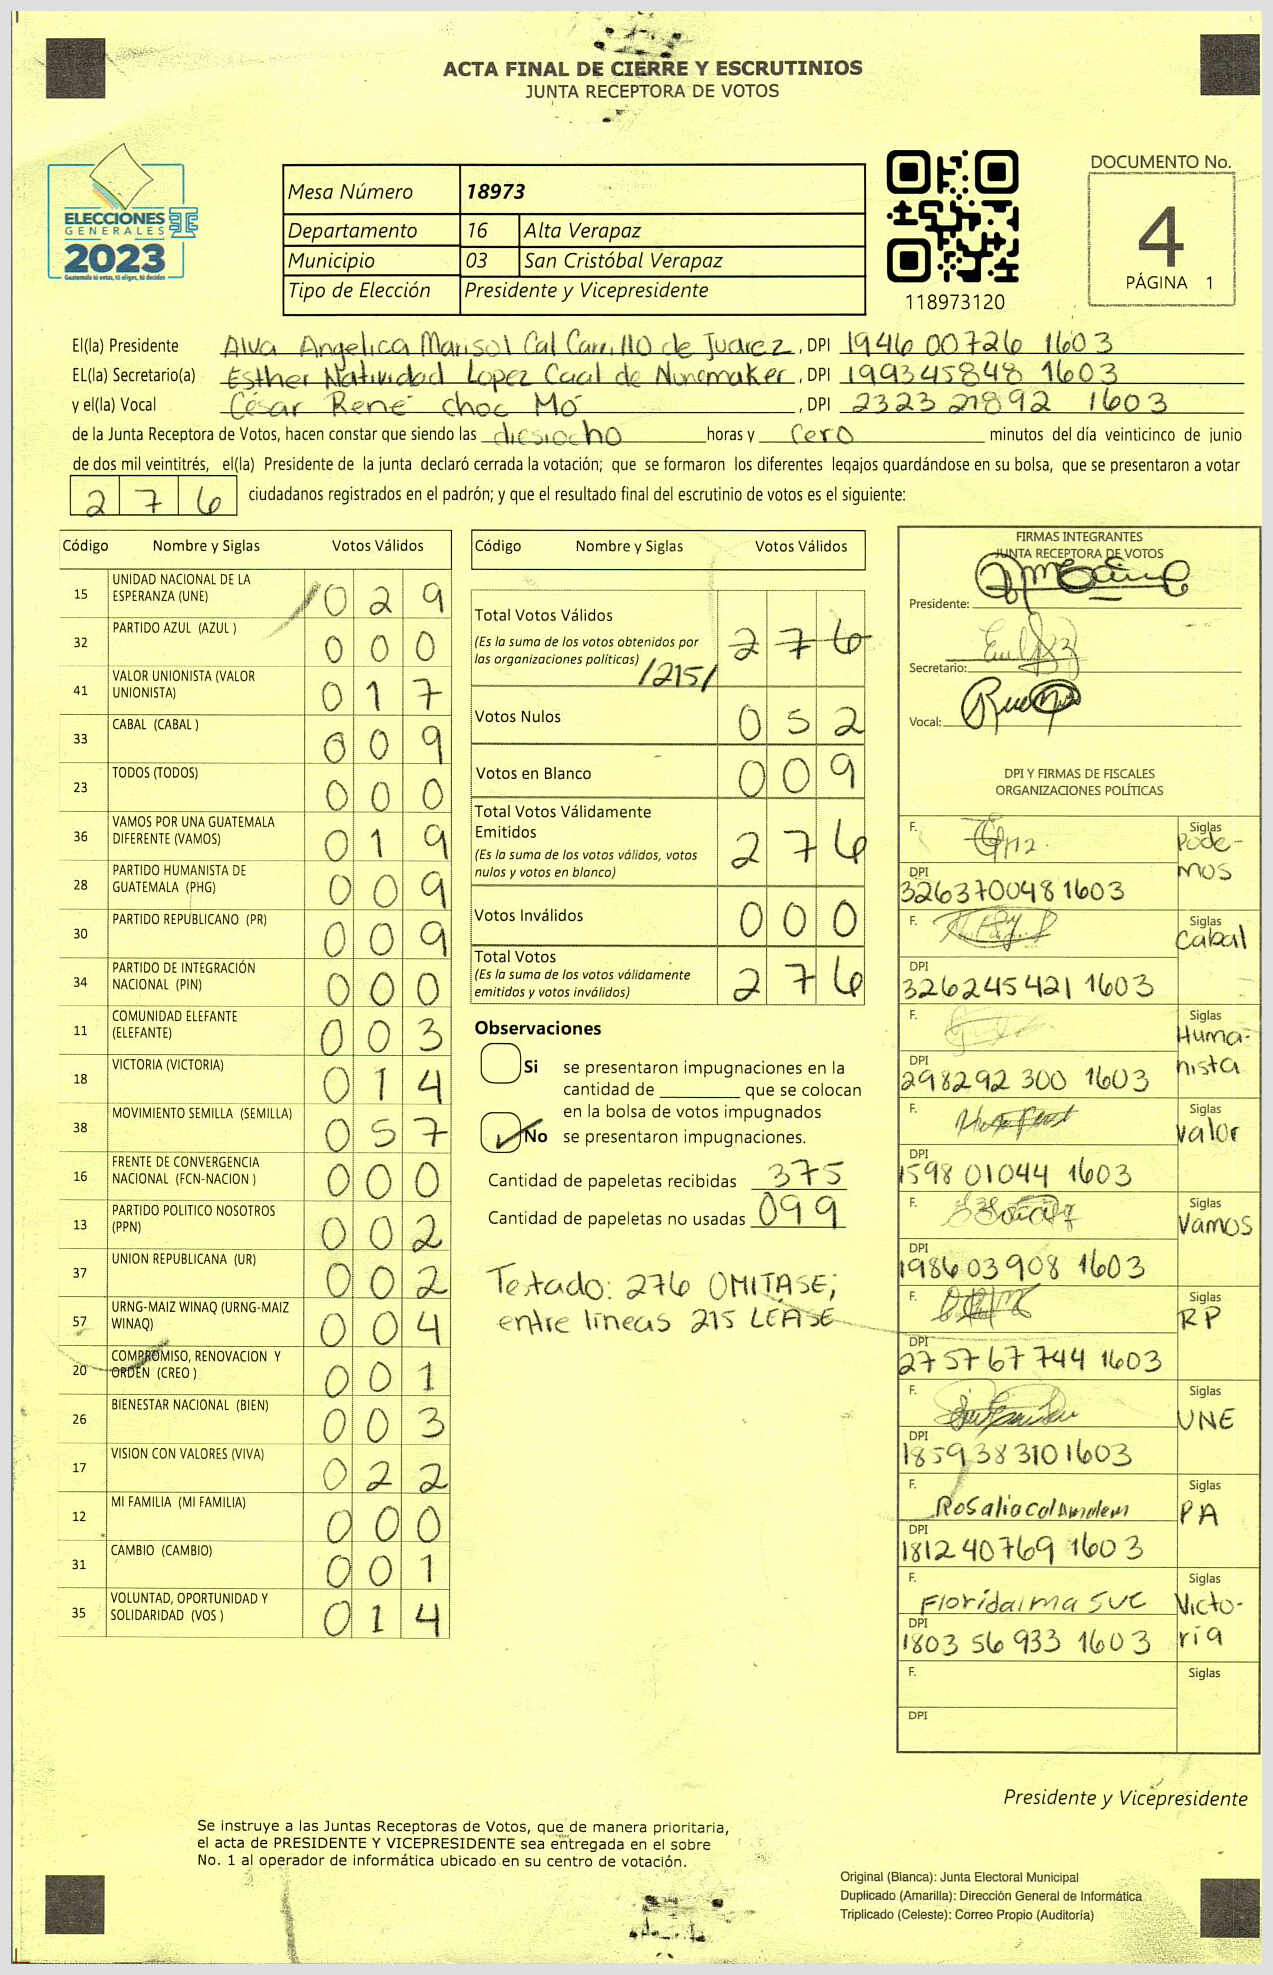 ACTA FINAL DE CIERRE Y ESCRUTINIOS
JUNTA RECEPTORA DE VOTOS
ELECCIONES
GENERALES
2023
Guatemala tú votas, tú eliges, tú decides
Mesa Número 18973
Departamento 16 Alta Verapaz
Municipio 03 San Cristóbal Verapaz
Tipo de Elección Presidente y Vicepresidente
118973120
DOCUMENTO No.
4
PÁGINA 1
El(la) Presidente Alva Angelica Marisol Cal Carrillo de Juarez, DPI 1946 00726 1603
EL(la) Secretario(a) Esther Natividad Lopez Caal de Nunemaker, DPI 199345848 1603
y el(la) Vocal César René choc Mó, DPI 2323 21892 1603
de la Junta Receptora de Votos, hacen constar que siendo las diesiocho horas y cero minutos del día veinticinco de junio
de dos mil veintitrés, el(la) Presidente de la junta declaró cerrada la votación; que se formaron los diferentes legajos guardándose en su bolsa, que se presentaron a votar
276 ciudadanos registrados en el padrón; y que el resultado final del escrutinio de votos es el siguiente:
Código Nombre y Siglas Votos Válidos
15 UNIDAD NACIONAL DE LA ESPERANZA (UNE) 029
32 PARTIDO AZUL (AZUL ) 000
41 VALOR UNIONISTA (VALOR UNIONISTA) 017
33 CABAL (CABAL ) 009
23 TODOS (TODOS) 000
36 VAMOS POR UNA GUATEMALA DIFERENTE (VAMOS) 019
28 PARTIDO HUMANISTA DE GUATEMALA (PHG) 009
30 PARTIDO REPUBLICANO (PR) 009
34 PARTIDO DE INTEGRACIÓN NACIONAL (PIN) 000
11 COMUNIDAD ELEFANTE (ELEFANTE) 003
18 VICTORIA (VICTORIA) 014
38 MOVIMIENTO SEMILLA (SEMILLA) 057
16 FRENTE DE CONVERGENCIA NACIONAL (FCN-NACION ) 000
13 PARTIDO POLITICO NOSOTROS (PPN) 002
37 UNION REPUBLICANA (UR) 002
57 URNG-MAIZ WINAQ (URNG-MAIZ WINAQ) 004
20 COMPROMISO, RENOVACION Y ORDEN (CREO ) 001
26 BIENESTAR NACIONAL (BIEN) 003
17 VISION CON VALORES (VIVA) 022
12 MI FAMILIA (MI FAMILIA) 000
31 CAMBIO (CAMBIO) 001
35 VOLUNTAD, OPORTUNIDAD Y SOLIDARIDAD (VOS ) 014
Código Nombre y Siglas Votos Válidos
Total Votos Válidos 276
(Es la suma de los votos obtenidos por
las organizaciones políticas) /215/
Votos Nulos 052
Votos en Blanco 009
Total Votos Válidamente
Emitidos 276
(Es la suma de los votos válidos, votos
nulos y votos en blanco)
Votos Inválidos 000
Total Votos 276
(Es la suma de los votos válidamente
emitidos y votos inválidos)
Observaciones
Si se presentaron impugnaciones en la
cantidad de ________ que se colocan
en la bolsa de votos impugnados
No se presentaron impugnaciones.
Cantidad de papeletas recibidas 375
Cantidad de papeletas no usadas 099
Testado: 276 OMITASE;
entre líneas 215 LÉASE
FIRMAS INTEGRANTES
JUNTA RECEPTORA DE VOTOS
Presidente:
Secretario:
Vocal:
DPI Y FIRMAS DE FISCALES
ORGANIZACIONES POLÍTICAS
F. Siglas
Podemos
DPI
326370048 1603
F. Siglas
Cabal
DPI
326245421 1603
F. Siglas
Humanista
DPI
298292 300 1603
F. Siglas
Valor
DPI
1598 01044 1603
F. Siglas
Vamos
DPI
198603908 1603
F. Siglas
RP
DPI
2757 67 744 1603
F. Siglas
UNE
DPI
1859383101603
F. Siglas
PA
DPI
181240769 1603
F. Floridalma Suc Siglas
Victoria
DPI
1803 56 933 1603
F. Siglas
DPI
Presidente y Vicepresidente
Se instruye a las Juntas Receptoras de Votos, que de manera prioritaria,
el acta de PRESIDENTE Y VICEPRESIDENTE sea entregada en el sobre
No. 1 al operador de informática ubicado en su centro de votación.
Original (Blanca): Junta Electoral Municipal
Duplicado (Amarilla): Dirección General de Informática
Triplicado (Celeste): Correo Propio (Auditoría)